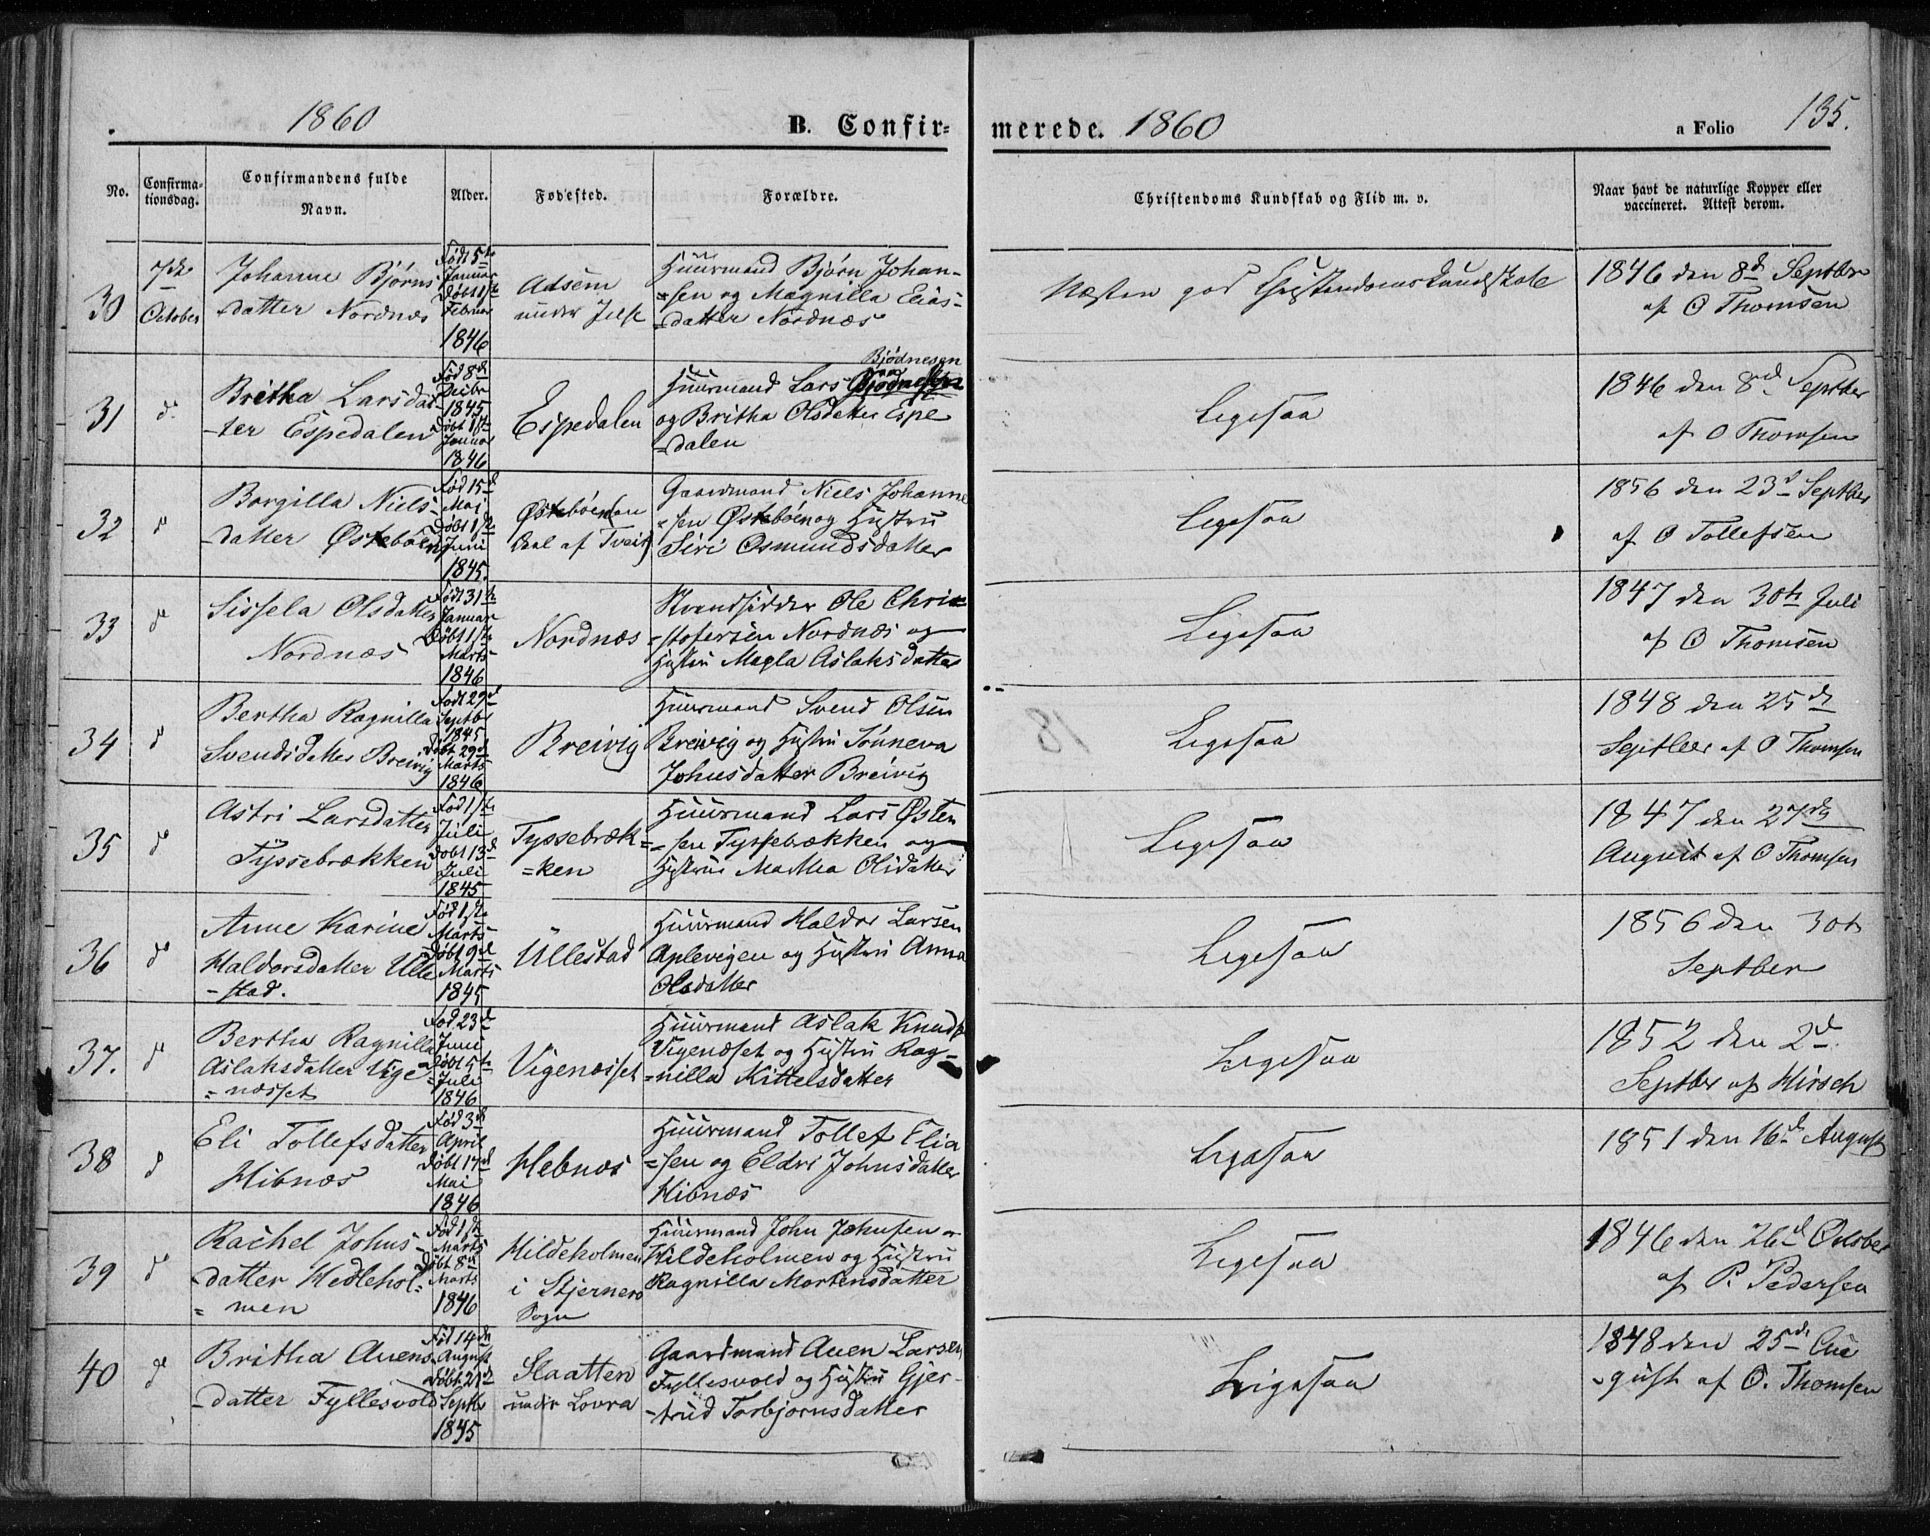 1860
B. Confirmerede. 1860
a Folio 135.
No.
Confirmationsdag.
Confirmandens fulde Navn.
Alder.
Fødested.
Forældre.
Christendoms Kundskab og Flid m. v.
Naar havt de naturlige Kopper eller vaccineret. Attest derom.
30
7de October
Johanne Bjørns-
datter Nordnæs
Født 5te
Januar
Døbt 1ste
Februar
1846
Adsem
under Jelse
Huusmand Bjørn Johan-
-sen og Magnilla Elias-
-datter Nordnæs
Næsten god Christendomskundskab
1846 den 8d Septber
af O Thomsen
31
d
Britha Larsdat-
-ter Espedalen
Fød 8d
Decbr
1845
Døbt 1ste
Januar
1846
Espedalen
Huusmand Lars Bjødnesen
og Britha Olsdatter Espe
-dalen
Ligesaa
1846 den 8d Septber
af O Thomsen
32
d
Borgilla Niels-
datter Østebøen
Fød 15d
Maj
Døbt 1ste
Juni
1845.
Østebøen (en
Deel af Tveit)
Gaardmand Niels Johanne
-sen Østebøen og Hustru
Siri Osmundsdatter
Ligesaa
1856 den 23d Septber
af O Tollefsen
33
d
Sissela Olsdatter
Nordnæs
Født 31te
Januar
Døbt 1ste
Marts
1846
Nordnæs
Strandsidder Ole Chri-
-stofersen Nordnæs og
Hustru Magla Aslaksdatter
Ligesaa
1847 den 30te Juli
af O Thomsen
34
d
Bertha Ragnilla
Svendsdatter Breivig
Født 29d
Septbr
1845
Døbt 29d
Marts
1846
Breivig
Huusmand Svend Olsen
Breivig og Hustru Sünneva
Johnsdatter Breivig
Ligesaa
1848 den 25de
Septber af O Thomsen
35
d
Astri Larsdatter
Tyssebrækken
Fød 1ste
Juli
Døbt 13d
Juli
1845
Tyssebræk-
-ken
Huusmand Lars Østen
-sen Tyssebrækken og
Hustru Martha Olsdatter
Ligesaa
1847 den 27de
August af O Thomsen
36
d
Anne Karine
Haldorsdatter Ulle
-stad.
Fød 1ste
Marts
Døbt 9d
Marts
1845
Ullestad
Huusmand Haldor Larsen
Aplevigen og Hustru Anna
Olsdatter
Ligesaa
1856 den 30te
Septber
37.
d
Bertha Ragnilla
Aslaksdatter Vige
-næsset
Fød 23d
Juni
Døbt 5te
Juli
1846
Vigenæsset
Huusmand Aslak Knuds
Vigenæset og Hustru Rag-
-nilla Kittelsdatter
Ligesaa
1852 den 2d
Septber af Hirsch
38
d
Eli Tollefsdatter
Hibnæs
Fød 3d
April
Døbt 17d
Mai
1846
Hebnæs
Huusmand Tollef Elia
-sen og Eldri Johnsdatter
Hibnæs
Ligesaa
1851 den 16d August
39
d
Rachel Johns-
-datter Hedlehol-
-men
Fød 1ste
Marts
Døbt 8de
Marts
1846
Hildeholmen
i Stjernerø
Sogn
Huusmand John Johnsen
Hildeholmen og Hustru
Ragnilla Mortensdatter
Ligesaa
1846 den 26d October
af P. Pedersen
40
d
Britha Auens-
-datter Fyllesvold
Fød 14de
August
Døbt 21d
Septbr
1845
Slaatten
under Lovra
Gaardmand Auen Larsen
Fyllesvold og Hustru Gjer-
-trud Torbjørnsdatter
Ligesaa
1848 den 25de Au
-gust af O. Thomsen